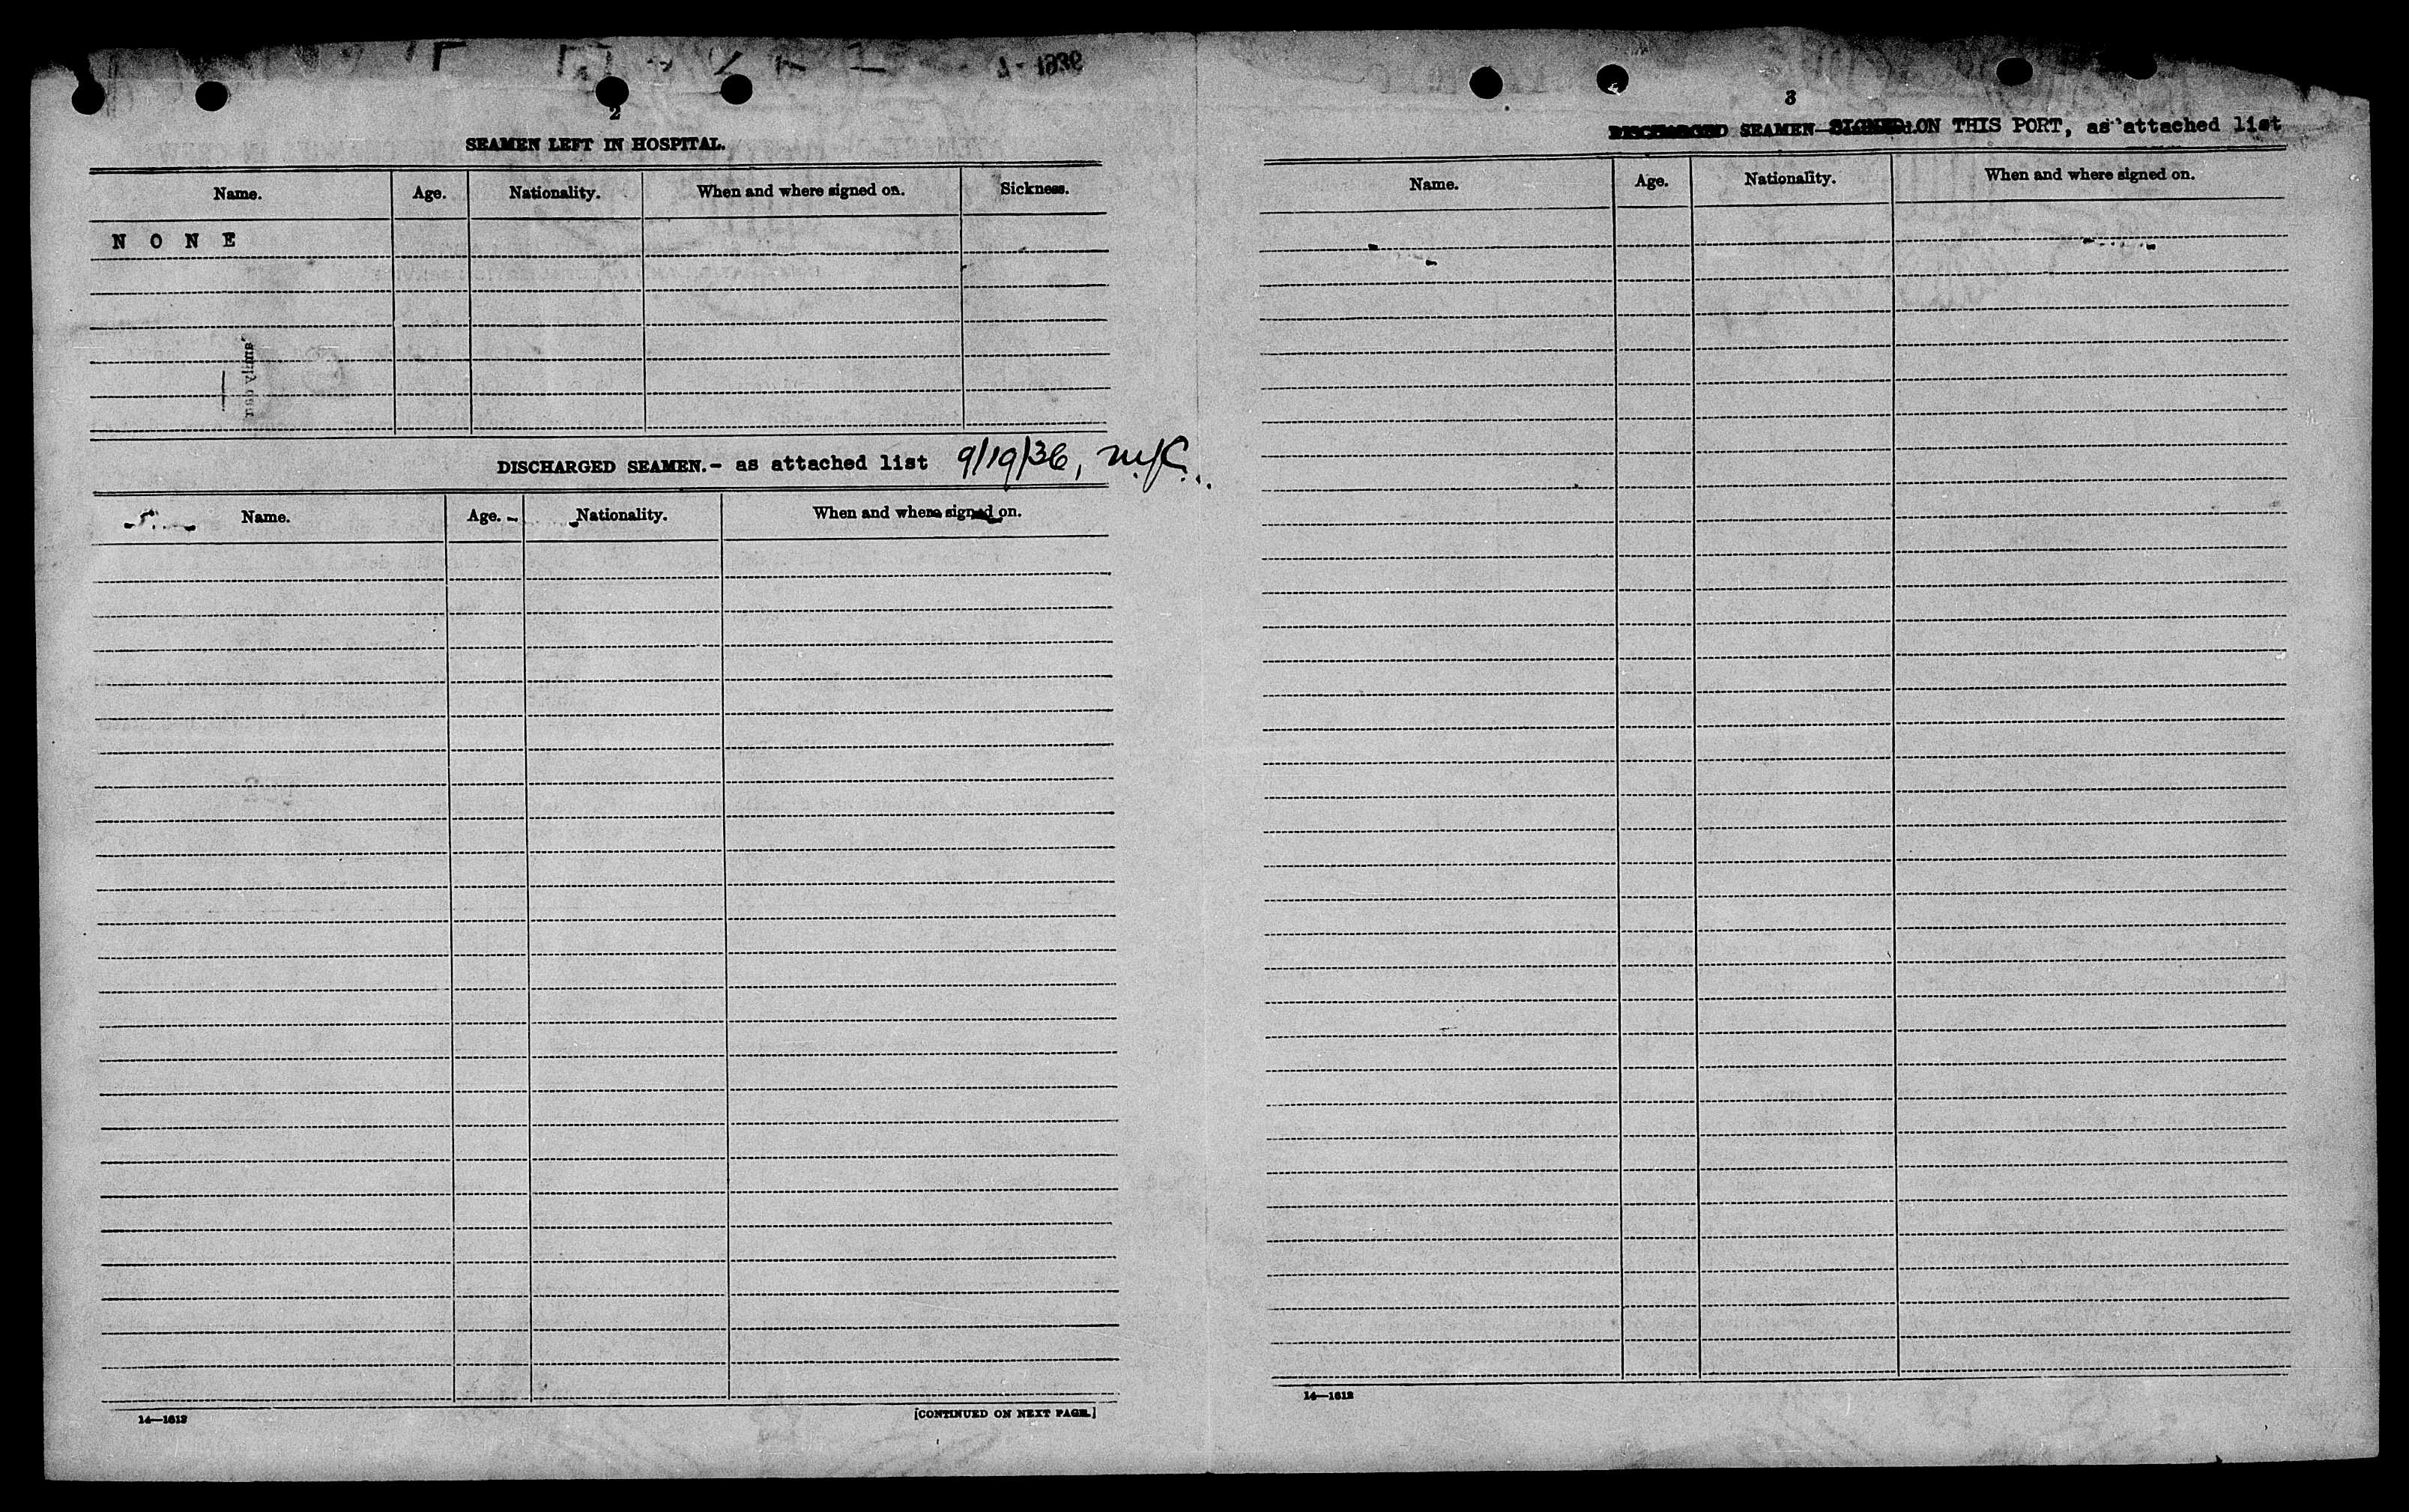 2
SEAMEN LEFT IN HOSPITAL.
Name. Age. Nationality. When and where signed on. Sickness.
N O N E
DISCHARGED SEAMEN.- as attached list 9/19/36,
Name. Age. Nationality. When and where signed on.
14—1612
[CONTINUED ON NEXT PAGE.]
3
DISCHARGED SEAMEN—SIGNED ON THIS PORT, as attached list
Name. Age. Nationality. When and where signed on.
14—1612